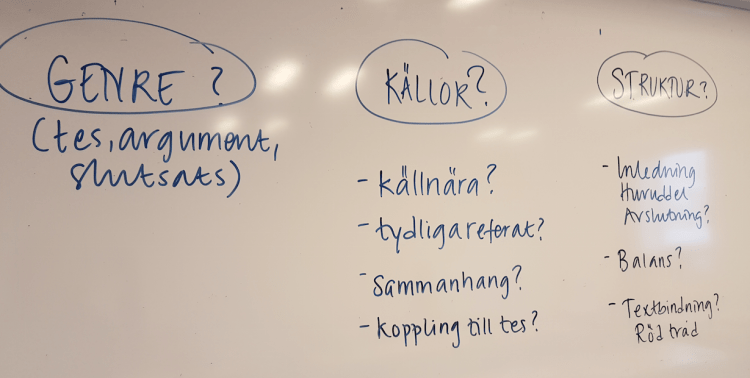 GENRE?
(tes, argument,
slutsats)
KÄLLOR?
- källnära?
- tydliga referat?
- Sammanhang?
- koppling till tes?
STRUKTUR?
- Inledning
Huvuddel
Avslutning?
- Balans?
- Textbindning?
Röd tråd